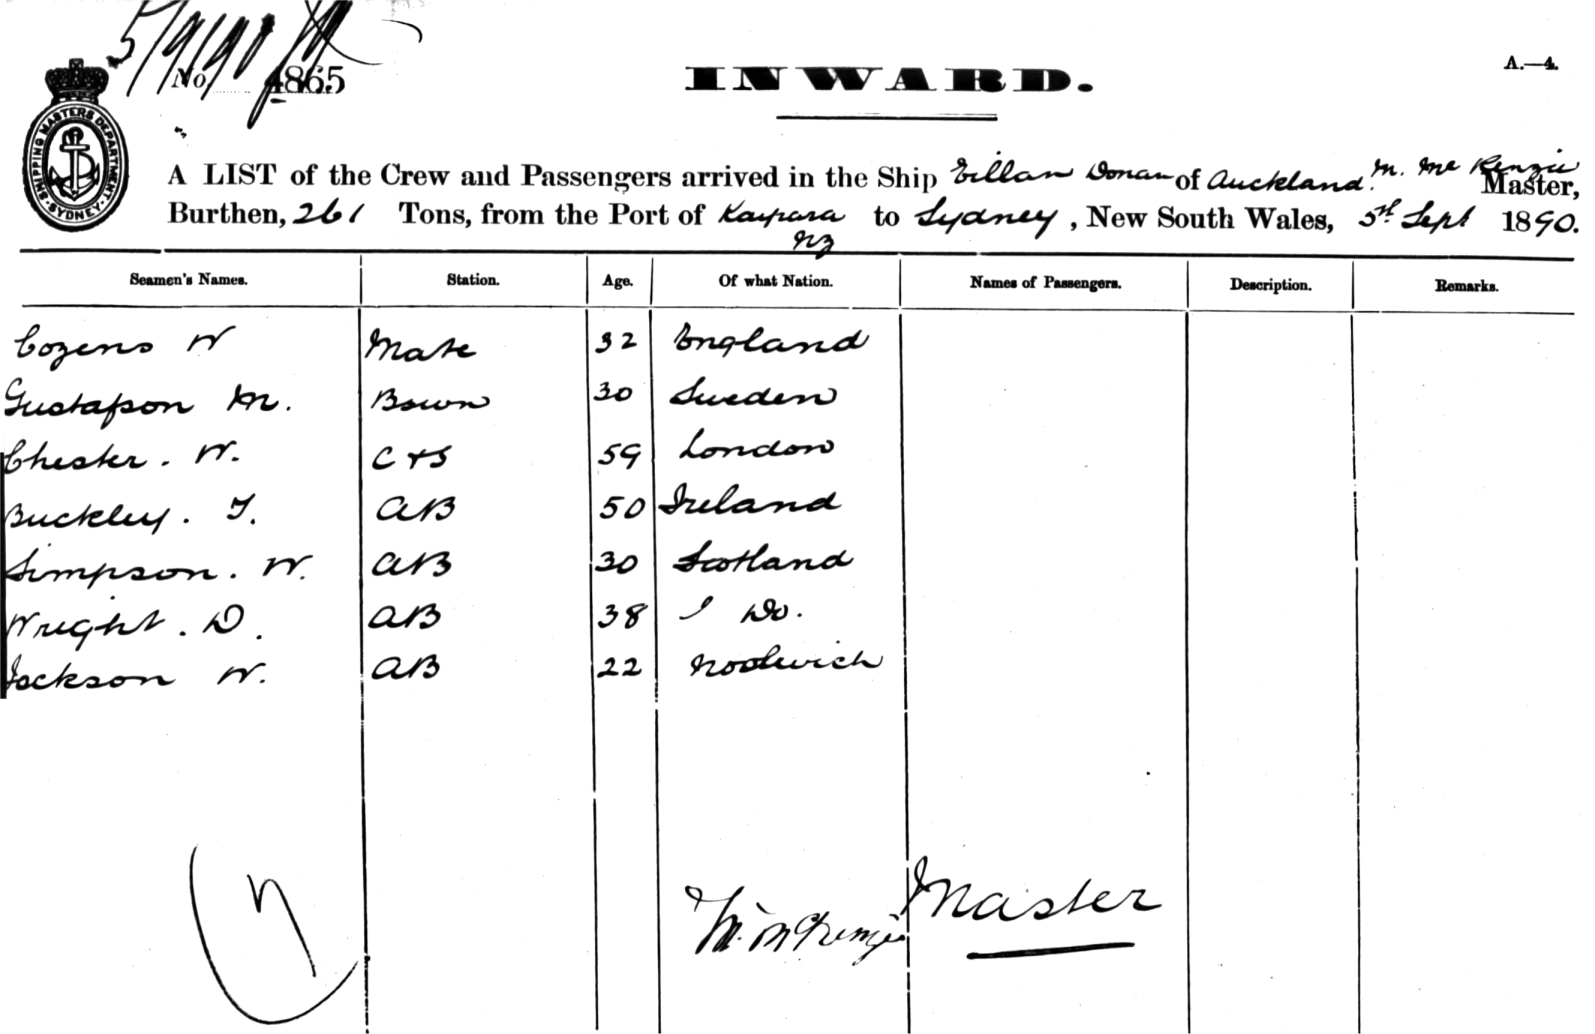 5/9/90
No. 4865
INWARD.
A.—4.
SHIPPING MASTERS DEPARTMENT SYDNEY
A LIST of the Crew and Passengers arrived in the Ship Eillan Donan of Auckland. M. McKenzie Master,
Burthen, 261 Tons, from the Port of Kaipara NZ to Sydney, New South Wales, 5th Sept 1890.
Seamen's Names. Station. Age. Of what Nation. Names of Passengers. Description. Remarks.
Cozens W Mate 32 England
Gustafson M. Bswn 30 Sweden
Chester. W. C & S 59 London
Buckley. T. AB 50 Ireland
Simpson. W. AB 30 Scotland
Wright. D. AB 38 Do.
Jackson W. AB 22 Woolwich
M. McKenzie Master